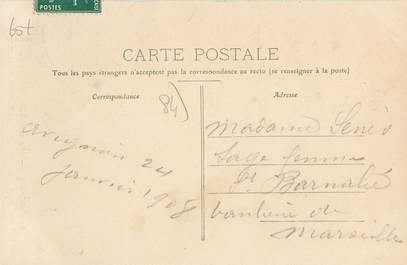 Lot
CARTE POSTALE
Tous les pays étrangers n'acceptent pas la correspondance au recto (se renseigner à la poste)
Correspondance
84)
Adresse
Avignon 24
Janvier 1908
Madame Senès
Sage femme
St Barnabé
banlieue de
Marseille